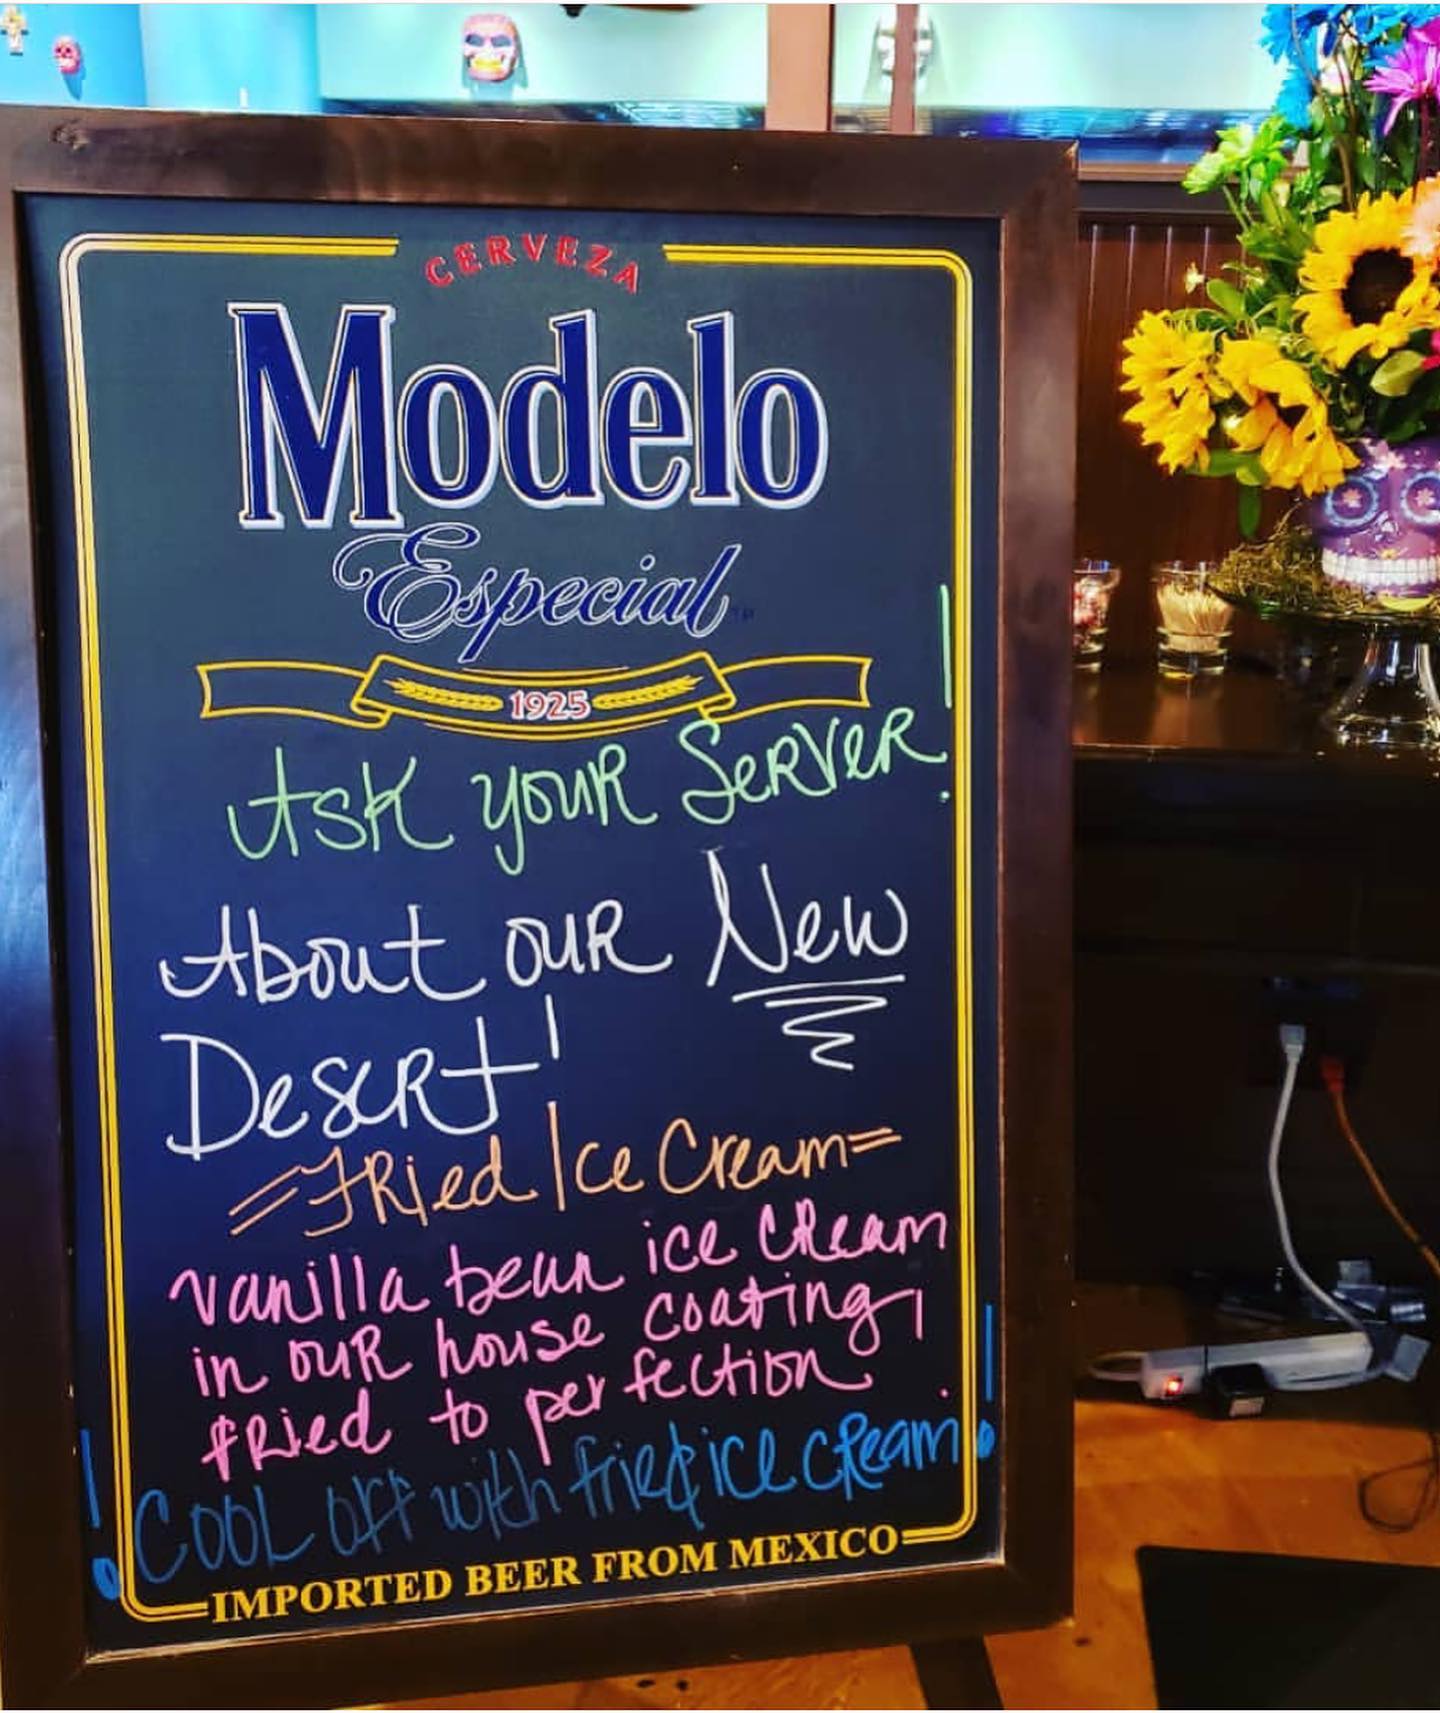 CERVEZA
Modelo
Especial
1925
Ask your Server!
About our New
Desert!
=Fried Ice Cream=
vanilla bean ice cream
in our house coating,
fried to perfection.
!Cool off with fried ice cream!
IMPORTED BEER FROM MEXICO